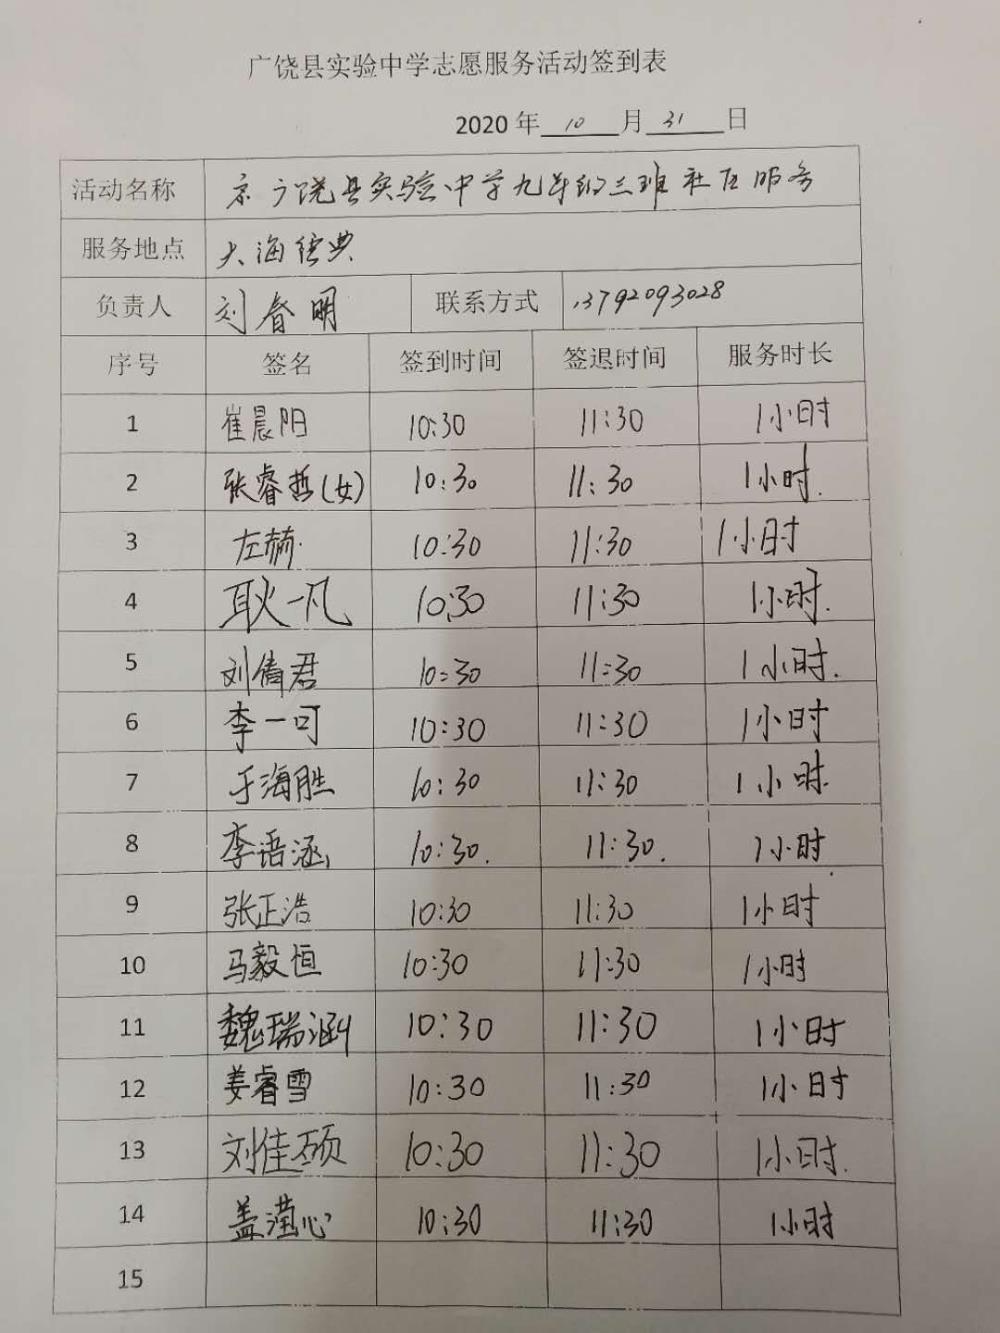 广饶县实验中学志愿服务活动签到表
2020 年 10 月 31 日
活动名称 广饶县实验中学九年级三班社区服务
服务地点 大海经典
负责人 刘春明 联系方式 13792093028
序号 签名 签到时间 签退时间 服务时长
1 崔晨阳 10:30 11:30 1小时
2 张睿哲(女) 10:30 11:30 1小时.
3 左赫 10:30 11:30 1小时
4 耿一凡 10:30 11:30 1小时.
5 刘倩君 10:30 11:30 1小时.
6 李一可 10:30 11:30 1小时
7 于海胜 10:30 11:30 1小时.
8 李语涵 10:30. 11:30. 1小时
9 张正浩 10:30 11:30 1小时
10 马毅恒 10:30 11:30 1小时
11 魏瑞涵 10:30 11:30 1小时
12 姜睿雪 10:30 11:30 1小时
13 刘佳硕 10:30 11:30 1小时.
14 盖滢心 10:30 11:30 1小时
15